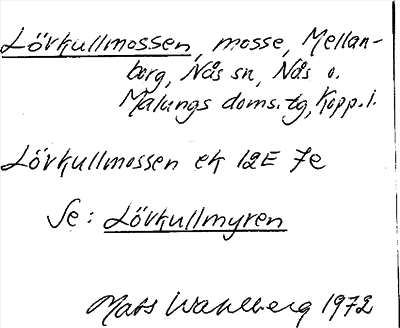 Lövkullmossen, mosse, Mellan-
borg, Nås sn, Nås o.
Malungs doms.tg, Kopp.l.
Lövkullmossen ek 12E 7e
Se: Lövkullmyren
Mats Wahlberg 1972